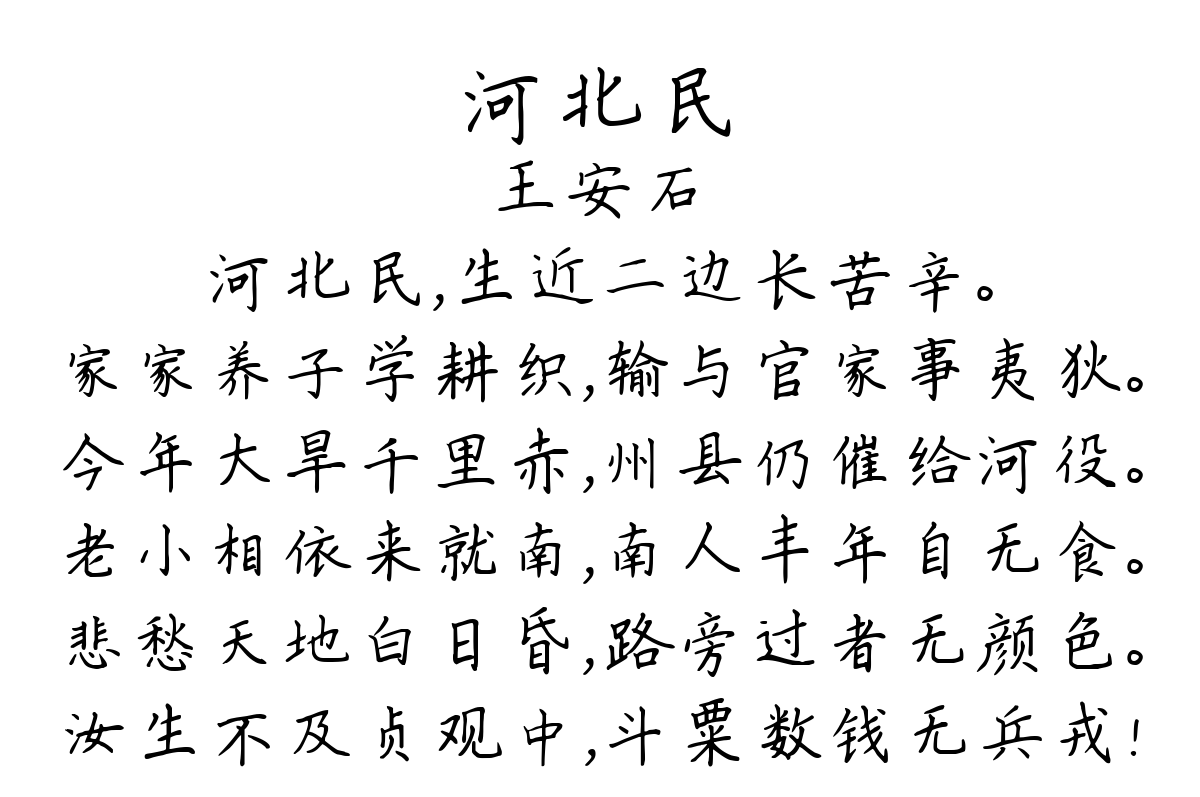 河北民
王安石
河北民,生近二边长苦辛。
家家养子学耕织,输与官家事夷狄。
今年大旱千里赤,州县仍催给河役。
老小相依来就南,南人丰年自无食。
悲愁天地白日昏,路旁过者无颜色。
汝生不及贞观中,斗粟数钱无兵戎!